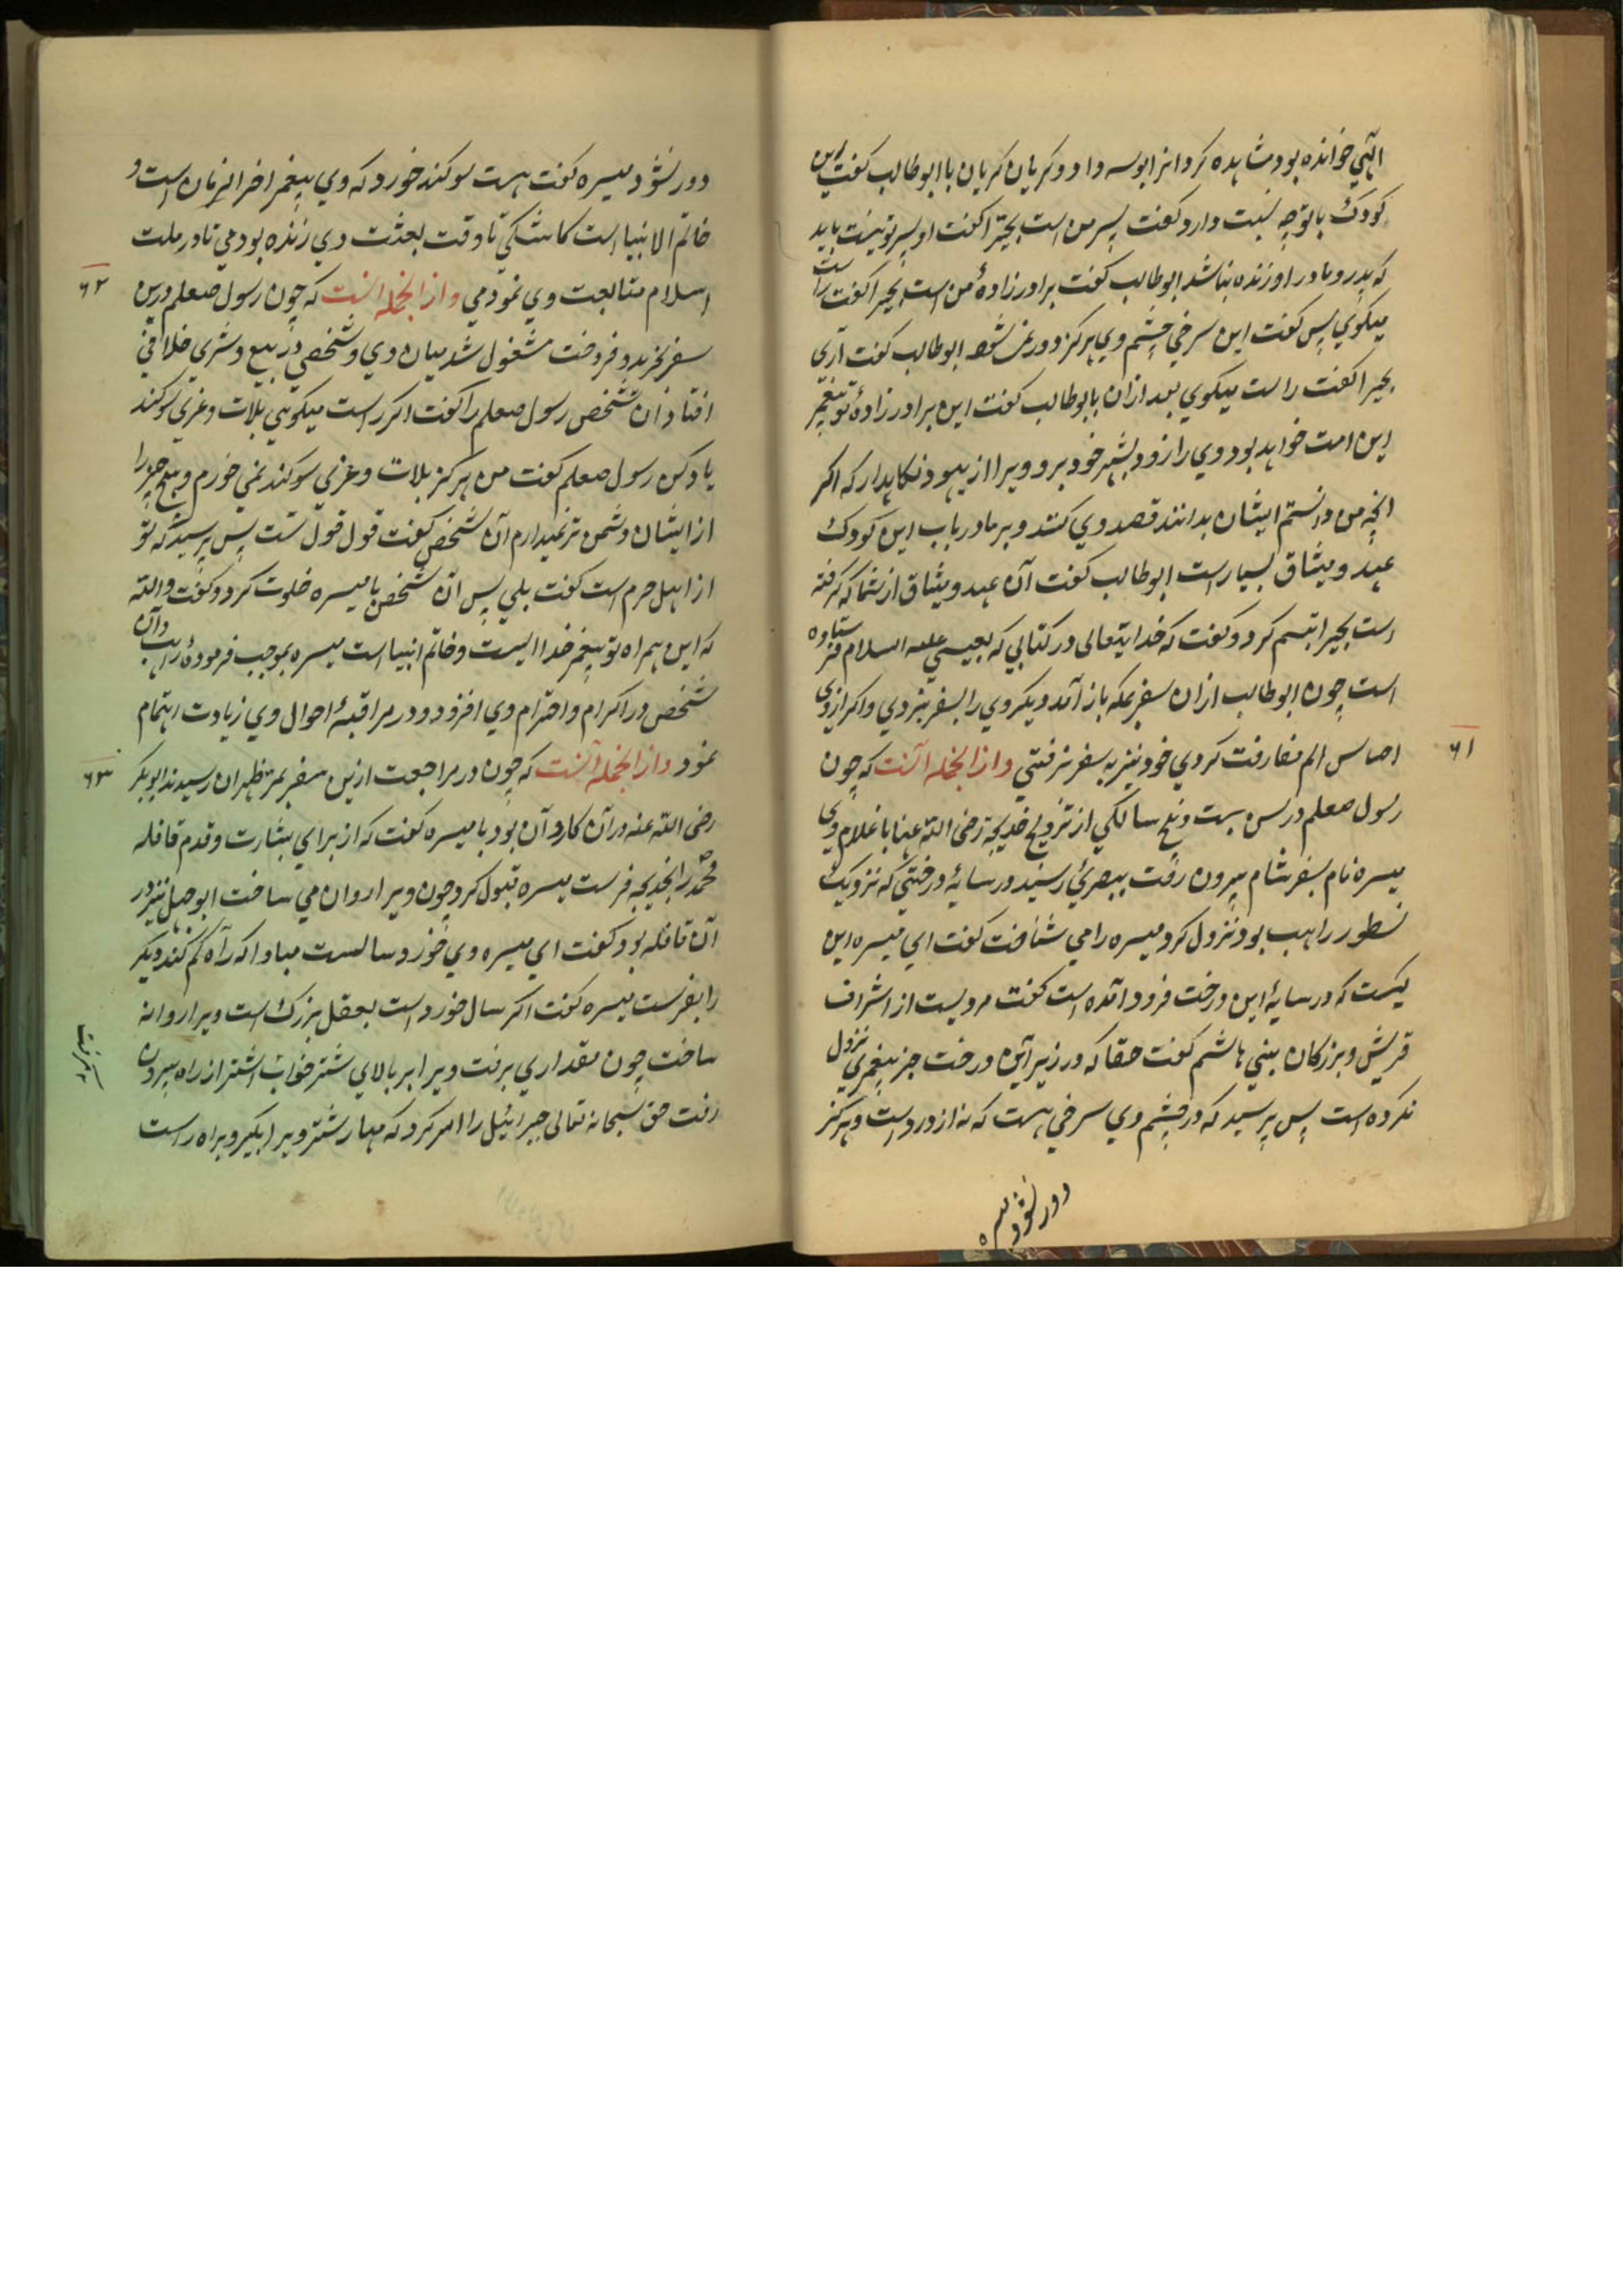 الهی خوانده بود مشاهده کرد انرا بوسه داد و کریان کریان با ابوطالب کفت این
کودک با تو چه نسبت دارد کفت پسر من است بحیرا کفت او پسر تو نیست باید
که پدر و مادر او زنده نباشد ابوطالب کفت برادرزادهٔ من است بحیرا کفت راست
میکوی پس کفت این سرخی چشم وی هرکز دور نمی شود ابوطالب کفت آری
بحیرا کفت راست میکوی بعد ازان با ابوطالب کفت این برادرزادهٔ تو پیغمبر
این امت خواهد بود وی را زود بشهر خود برو ویرا از یهود نکاهدار که اکر
انچه من دانستم ایشان بدانند قصد وی کنند و بر ما در باب این کودک
عهد و میثاق بسیار است ابوطالب کفت آن عهد و میثاق از شما که کرفته
است بحیرا تبسم کرد و کفت که خدایتعالی در کتابی که بعیسی علیه السلام فرستاده
است چون ابوطالب ازان سفر بمکه باز آمد دیکر وی را بسفر نبردی و اکر از وی
احساس الم مفارقت کردی خود نیز به سفر نرفتی و از انجمله آنست که چون
۶۱
رسول صعلم در سن بیست و پنج سالکی از تزویج خدیجه رضی الله عنها با غلام وی
میسره نام بسفر شام بیرون رفت ببصری رسید در سایهٔ درختی که نزدیک
نسطور راهب بود نزول کرد میسره را می شناخت کفت ای میسره این
کیست که در سایهٔ این درخت فرود آمده است کفت مردیست از اشراف
قریش و بزرکان بنی هاشم کفت حقا که در زیر آین درخت جز پیغمبری نزول
نکرده است پس پرسید که در چشم وی سرخی هست که نه از درد است و هرکز
دور نشود میسره
دور نشود میسره کفت هست سوکند خورد که وی پیغمبر اخر الزمان است و
خاتم الانبیا است کاشکی تا وقت بعثت وی زنده بودمی تا در ملت
اسلام متابعت وی نمودمی و از انجمله انست که چون رسول صعلم درین
۶۲
سفر بخرید و فروخت مشغول شد میان وی و شخصی در بیع و شری خلافی
افتاد ان شخص رسول صعلم را کفت اکر راست میکویی بلات و عزی سوکند
یاد کن رسول صعلم کفت من هرکز بلات و عزی سوکند نمی خورم و هیچ چیز را
از ایشان دشمن تر نمیدارم آن شخص کفت قول قول تست پس پرسید که تو
از اهل حرم است کفت بلی پس آن شخص با میسره خلوت کرد و کفت والله
که این همراه تو پیغمبر خداایست و خاتم انبیا است میسره بموجب فرمودهٔ راهب و آن
شخص در اکرام و احترام وی افزود و در مراقبهٔ احوال وی زیادت اهتمام
نمود و از انجمله آنست که چون در مراجعت ازین سفر بمر ظهران رسیدند ابوبکر
۶۳
رضی الله عنه در آن کاروآن بود با میسره کفت که از برای بشارت و قدم قافله
محمد را بخدیجه فرست میسره قبول کرد چون ویرا روان می ساخت ابوجهل نیز در
آن قافله بود کفت ای میسره وی خورد سالست مبادا که رآه کم کند دیکر
را بفرست میسره کفت اکر سال خورد است بعقل بزرک است ویرا روانه
ساخت چون مقداری برفت ویرا بر بالای شتر خواب اشتر از راه بیرون
رفت حق سبحانه تعالی جبرائیل را امر کرد که مهار شتر ویرا بکیر و براه راست